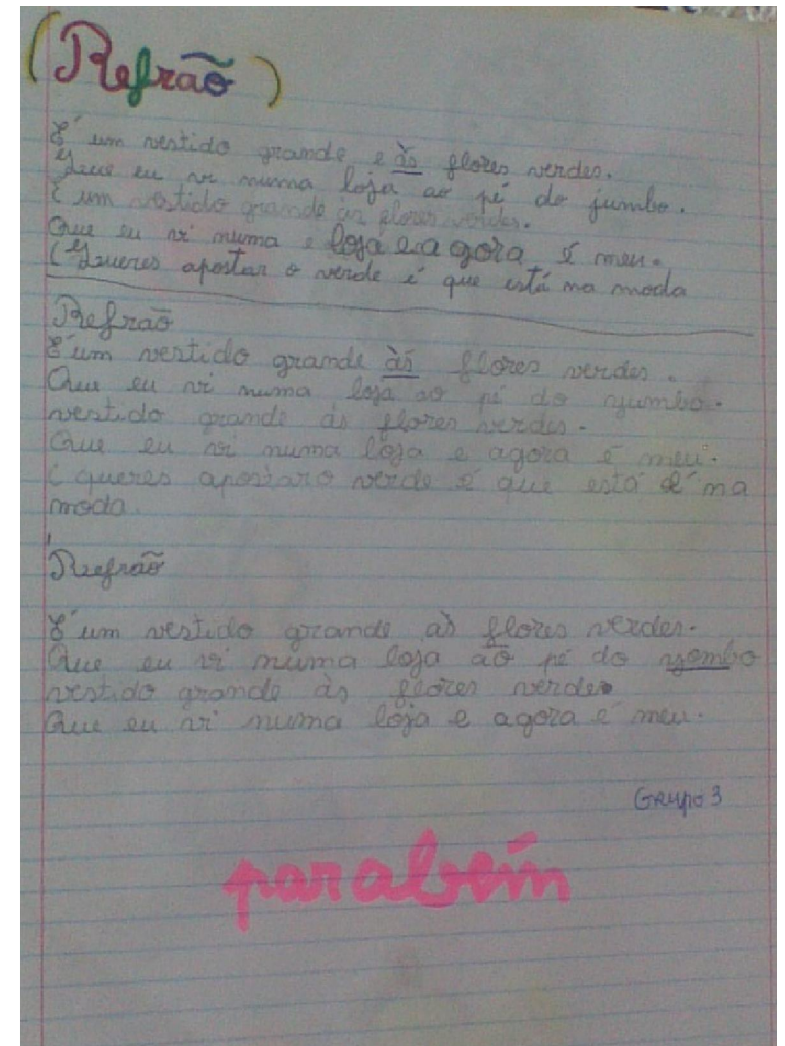 (Refrão)
É um vestido grande e às flores verdes.
Que eu vi numa loja ao pé do jumbo.
É um vestido grande às flores verdes.
Que eu vi numa e loja e agora é meu.
(Queres apostar o verde é que está na moda
Refrão
É um vestido grande às flores verdes.
Que eu vi numa loja ao pé do yumbo.
vestido grande às flores verdes.
Que eu vi numa loja e agora é meu.
E queres apostar o verde é que está é na
moda.
Refrão
É um vestido grande às flores verdes.
Que eu vi numa loja ao pé do yombo
vestido grande às flores verdes
Que eu vi numa loja e agora é meu.
Grupo 3
parabém